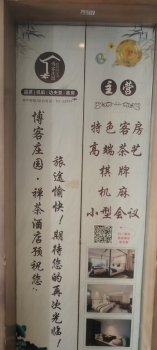 博客庄园·禅茶酒店预祝您：
旅途愉快！期待您的再次光临！
主营
特色客房
高端茶艺
棋牌
机麻
小型会议